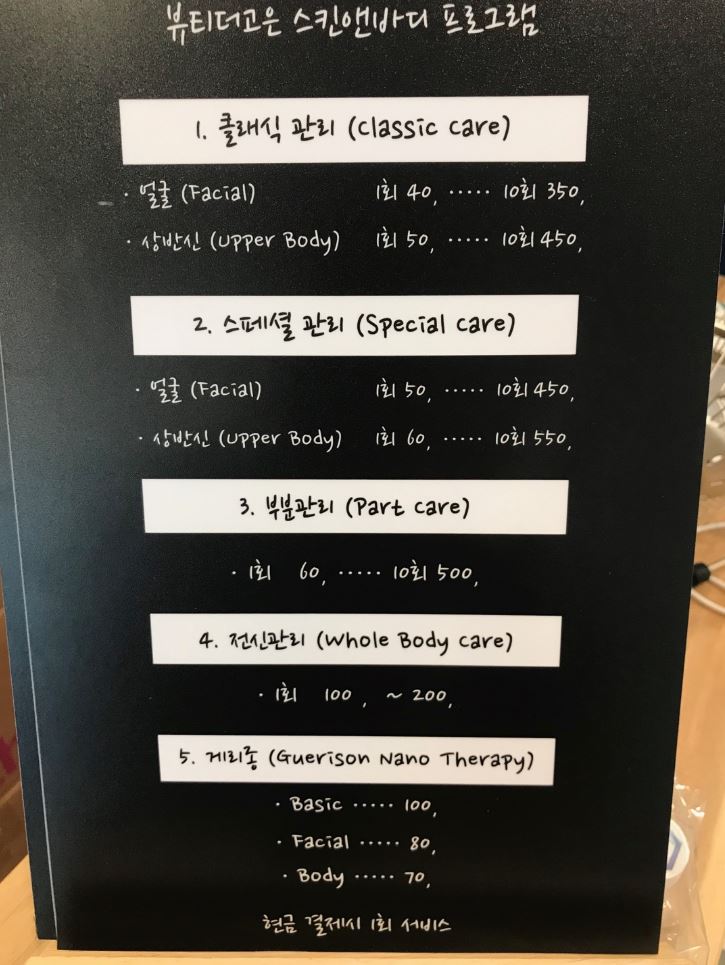 뷰티더고은 스킨앤바디 프로그램
1. 클래식 관리 (Classic Care)
· 얼굴 (Facial) 1회 40, ····· 10회 350,
· 상반신 (Upper Body) 1회 50, ····· 10회 450,
2. 스페셜 관리 (Special Care)
· 얼굴 (Facial) 1회 50, ····· 10회 450,
· 상반신 (Upper Body) 1회 60, ····· 10회 550,
3. 부분관리 (Part Care)
· 1회 60, ····· 10회 500,
4. 전신관리 (Whole Body Care)
· 1회 100, ~ 200,
5. 게리종 (Guerison Nano Therapy)
· Basic ····· 100,
· Facial ····· 80,
· Body ····· 70,
현금 결제시 1회 서비스